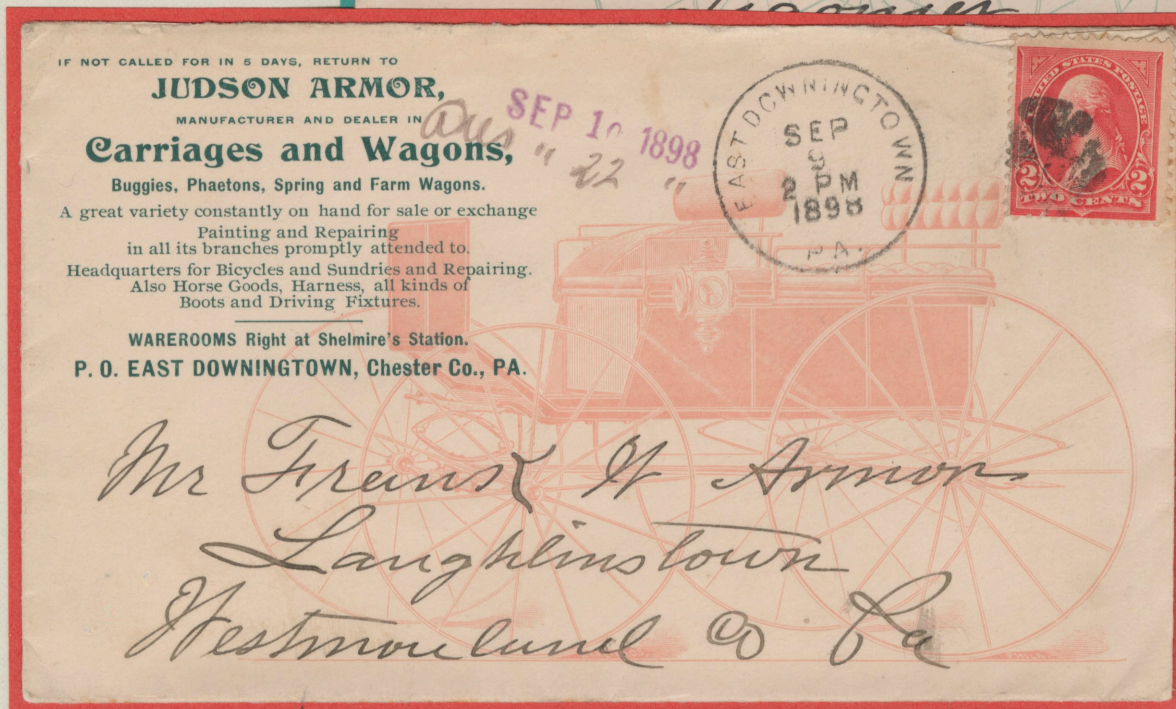 IF NOT CALLED FOR IN 5 DAYS, RETURN TO
JUDSON ARMOR,
MANUFACTURER AND DEALER IN
Carriages and Wagons,
Buggies, Phaetons, Spring and Farm Wagons.
A great variety constantly on hand for sale or exchange
Painting and Repairing
in all its branches promptly attended to.
Headquarters for Bicycles and Sundries and Repairing.
Also Horse Goods, Harness, all kinds of
Boots and Driving Fixtures.
WAREROOMS Right at Shelmire's Station.
P. O. EAST DOWNINGTOWN, Chester Co., PA.
SEP 10 1898
Ans " 22 "
EAST DOWNINGTOWN
SEP
9
2 PM
1898
PA.
UNITED STATES POSTAGE
2 2
TWO CENTS
Mr Frank W Armor
Laughlinstown
Westmoreland Co Pa